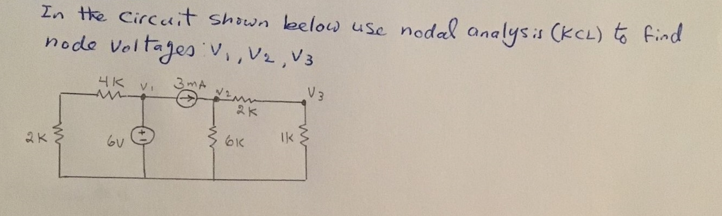 In the circuit shown below use nodal analysis (KCL) to find
node voltages: V1, V2, V3
4K V1 3mA V2 2K V3
2K 6V 6K 1K